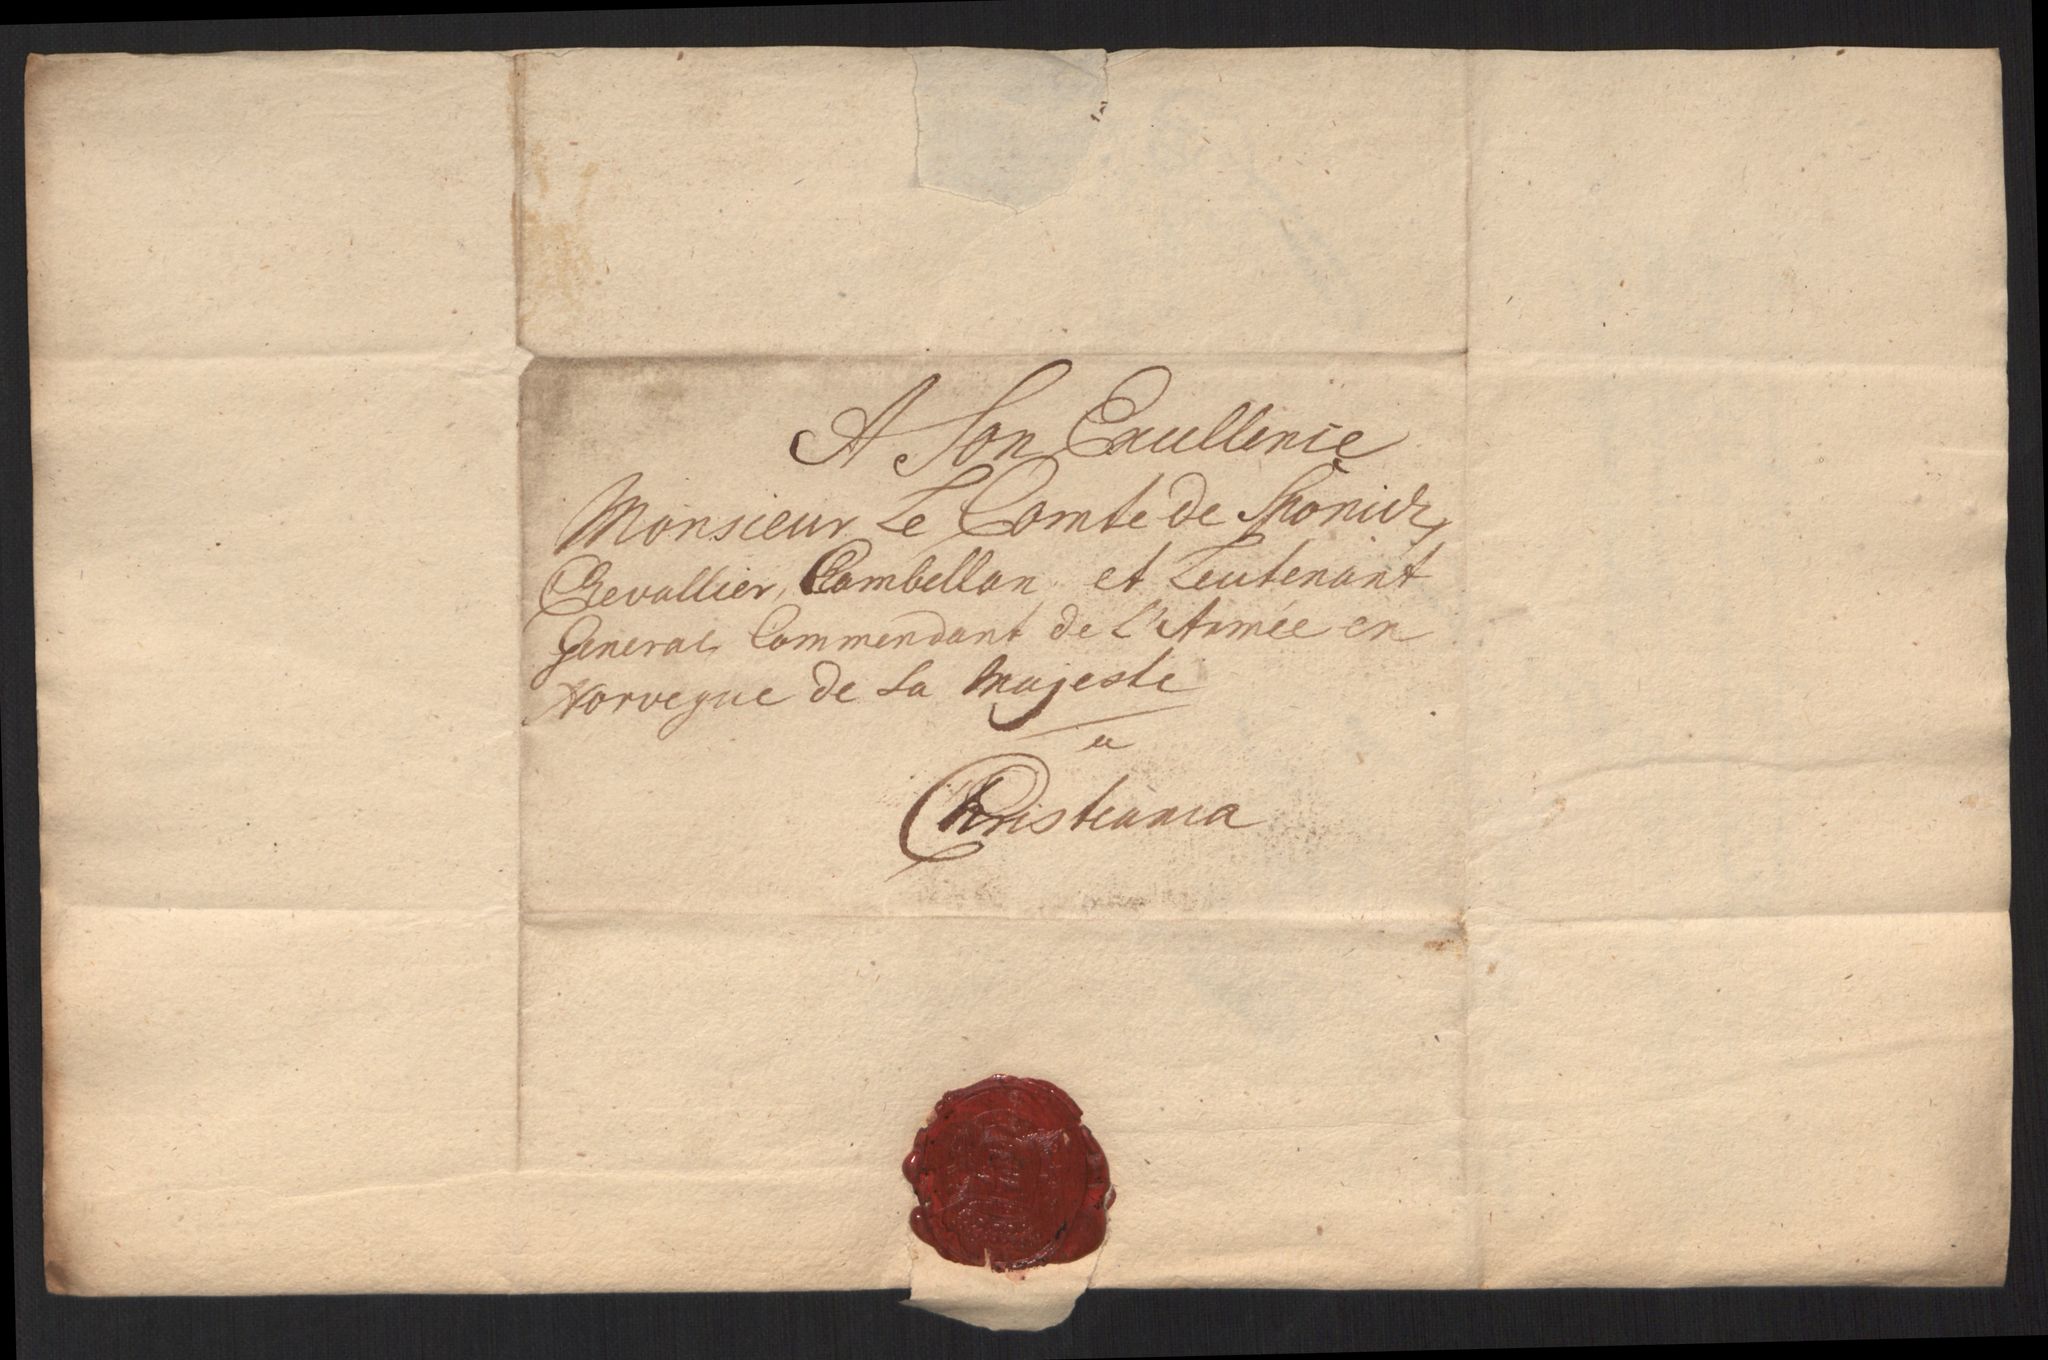 A Son Excellence
Monsieur Le Comte de Sponick,
Chevallier, Cambellan, et Leutenant
General Commendant de L'Armée en
Norvegue de Sa Majeste
a
Christiania